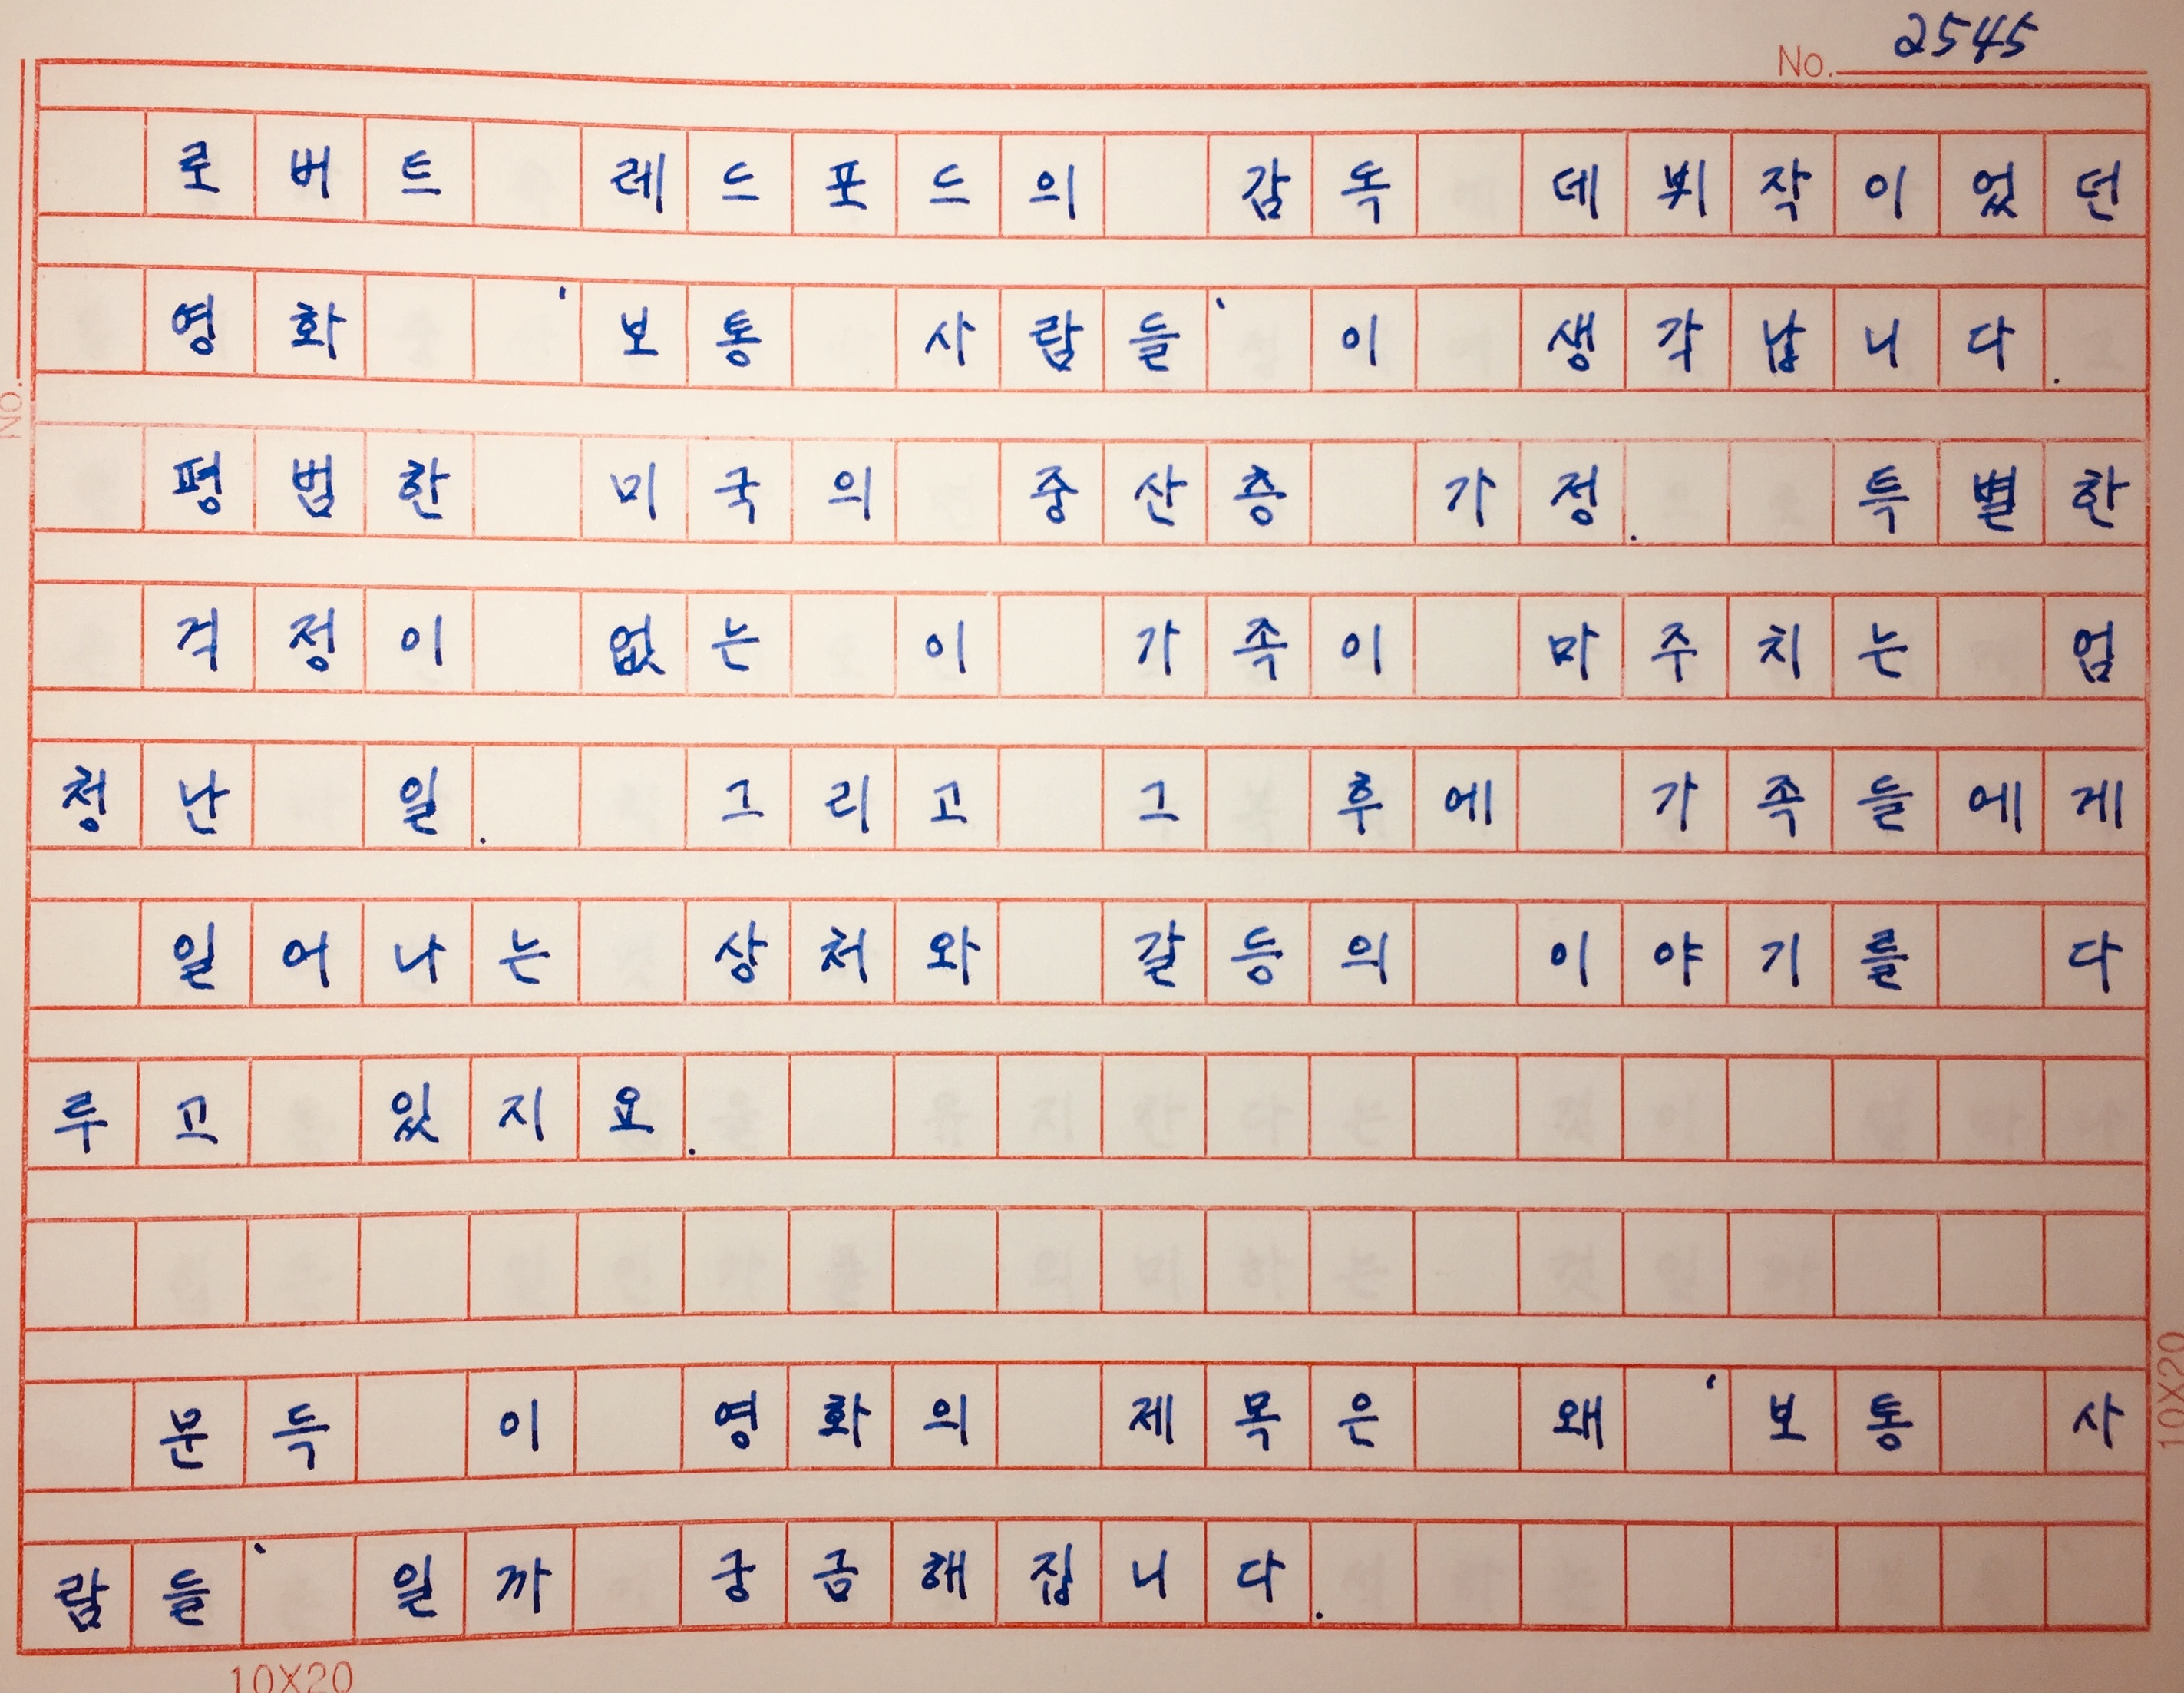 No. 2545
로버트 레드포드의 감독 데뷔작이었던
영화 '보통 사람들'이 생각납니다.
No.
평범한 미국의 중산층 가정. 특별한
걱정이 없는 이 가족이 마주치는 엄
청난 일. 그리고 그 후에 가족들에게
일어나는 상처와 갈등의 이야기를 다
루고 있지요.
문득 이 영화의 제목은 왜 '보통 사
람들'일까 궁금해집니다.
10X20
10X20